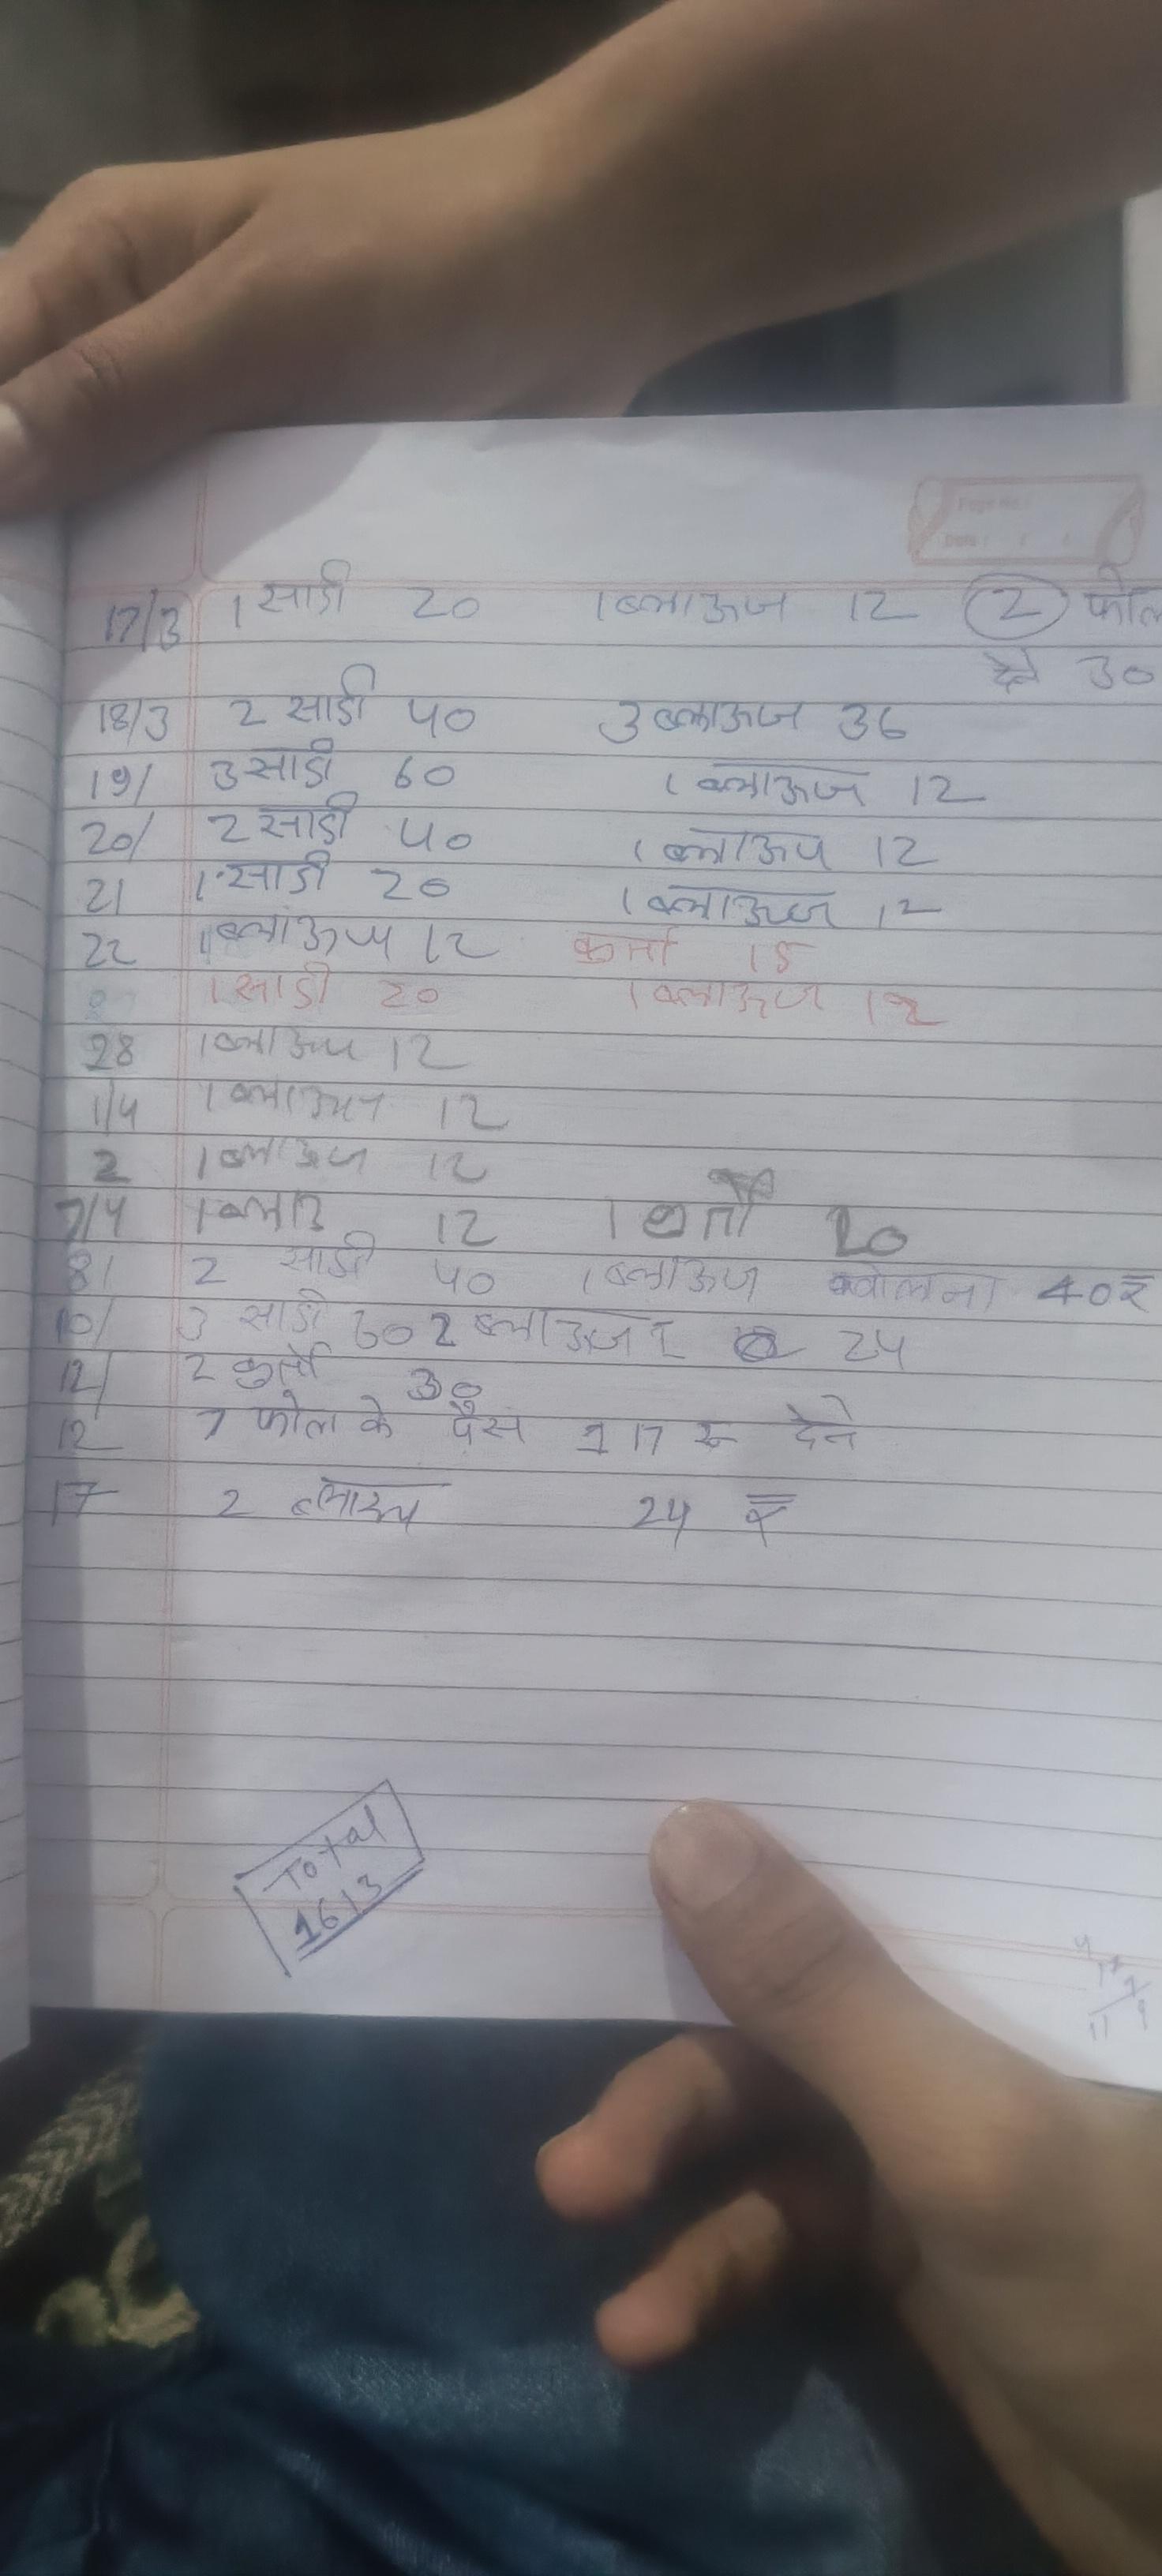 Page No.:
Date: / /
17/3 1 साडी 20 1 ब्लाऊज 12 2 फोल
देने 30
18/3 2 साडी 40 3 ब्लाऊज 36
19/ 3 साडी 60 1 ब्लाऊज 12
20/ 2 साडी 40 1 ब्लाऊज 12
21 1 साडी 20 1 ब्लाऊज 12
22 1 ब्लाऊज 12 कुर्ता 15
1 साडी 20 1 ब्लाऊज 12
28 1 ब्लाऊज 12
1/4 1 ब्लाऊज 12
2 1 ब्लाऊज 12
7/4 1 ब्लाउ 12 1 20
8/ 2 साडी 40 1 ब्लाऊज खोलना 40₹
10/ 3 साडी 60 2 ब्लाऊज 24
12/ 2 कुर्ता 30
12 7 फोल के पैसे 117 रु देने
17 2 ब्लाउज 24 ₹
Total
1613